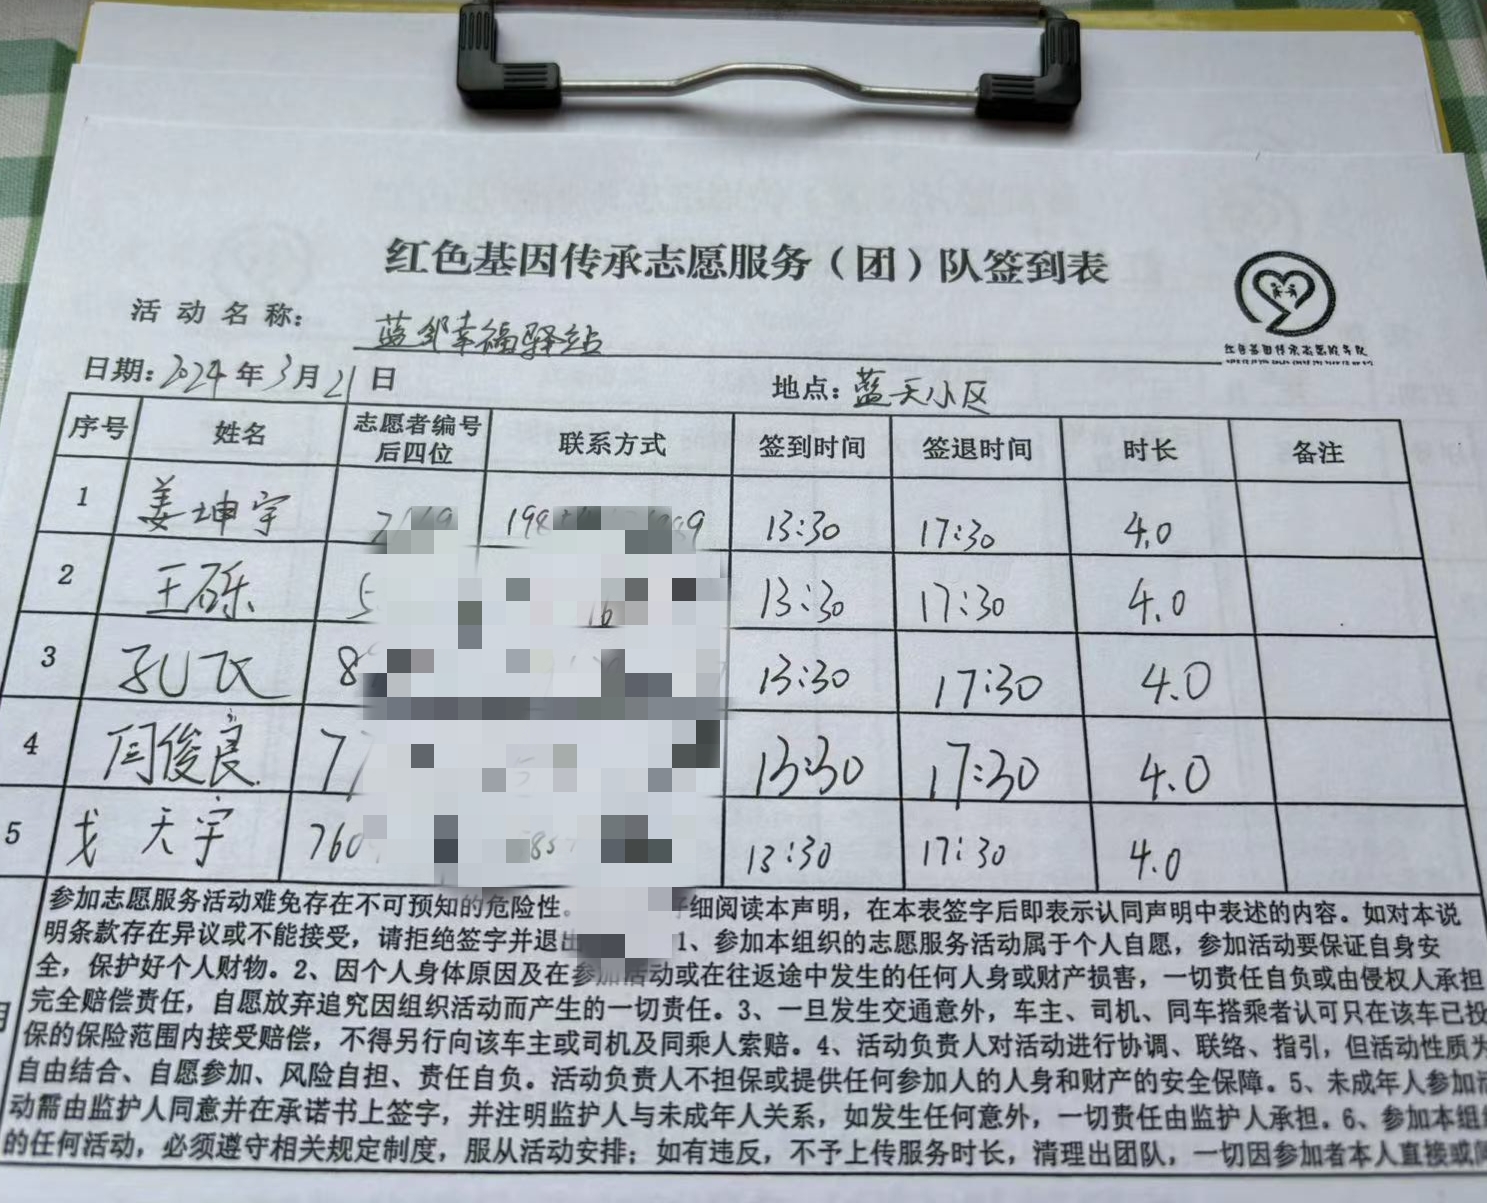 红色基因传承志愿服务（团）队签到表
红色基因传承志愿服务队
活动名称： 蓝邻幸福驿站
日期：2024年3月21日 地点：蓝天小区
序号 姓名 志愿者编号后四位 联系方式 签到时间 签退时间 时长 备注
1 姜坤宇 13:30 17:30 4.0
2 王砾 13:30 17:30 4.0
3 孔飞 13:30 17:30 4.0
4 闫俊良 13:30 17:30 4.0
5 戈天宇 13:30 17:30 4.0
参加志愿服务活动难免存在不可预知的危险性。 仔细阅读本声明，在本表签字后即表示认同声明中表述的内容。如对本说
明条款存在异议或不能接受，请拒绝签字并退出 1、参加本组织的志愿服务活动属于个人自愿，参加活动要保证自身安
全，保护好个人财物。2、因个人身体原因及在参加活动或在往返途中发生的任何人身或财产损害，一切责任自负或由侵权人承担
完全赔偿责任，自愿放弃追究因组织活动而产生的一切责任。3、一旦发生交通意外，车主、司机、同车搭乘者认可只在该车已投
保的保险范围内接受赔偿，不得另行向该车主或司机及同乘人索赔。4、活动负责人对活动进行协调、联络、指引，但活动性质为
自由结合、自愿参加、风险自担、责任自负。活动负责人不担保或提供任何参加人的人身和财产的安全保障。5、未成年人参加活
动需由监护人同意并在承诺书上签字，并注明监护人与未成年人关系，如发生任何意外，一切责任由监护人承担。6、参加本组织
的任何活动，必须遵守相关规定制度，服从活动安排；如有违反，不予上传服务时长，清理出团队，一切因参加者本人直接或间